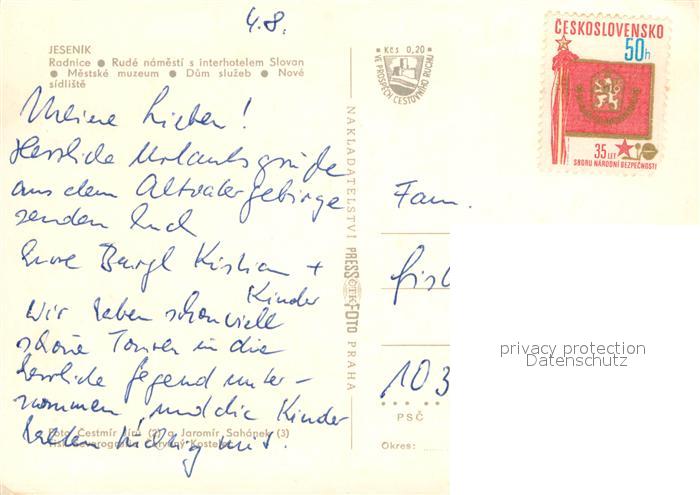 4.8.
JESENÍK
Radnice ● Rudé náměstí s interhotelem Slovan
● Městské muzeum ● Dům služeb ● Nové
sídliště
Meine Lieben!
Herrliche Urlaubsgrüße
aus dem Altvatergebirge
senden Euch
Eure Burgl +
Kinder
Wir haben schon viele
schöne Touren in die
herrliche Gegend unter-
nommen, und die Kinder
halten tüchtig mit.
Foto Čestmír Jírů (2) a Jaromír Sahánek (3)
NAKLADATELSTVÍ PRESSFOTO PRAHA
ČTK
Kčs 0,20
VE PROSPĚCH CESTOVNÍHO RUCHU
ČESKOSLOVENSKO
50h
35 LET
SBORU NÁRODNÍ BEZPEČNOSTI
Fam.
103
PSČ
Okres:
privacy protection
Datenschutz